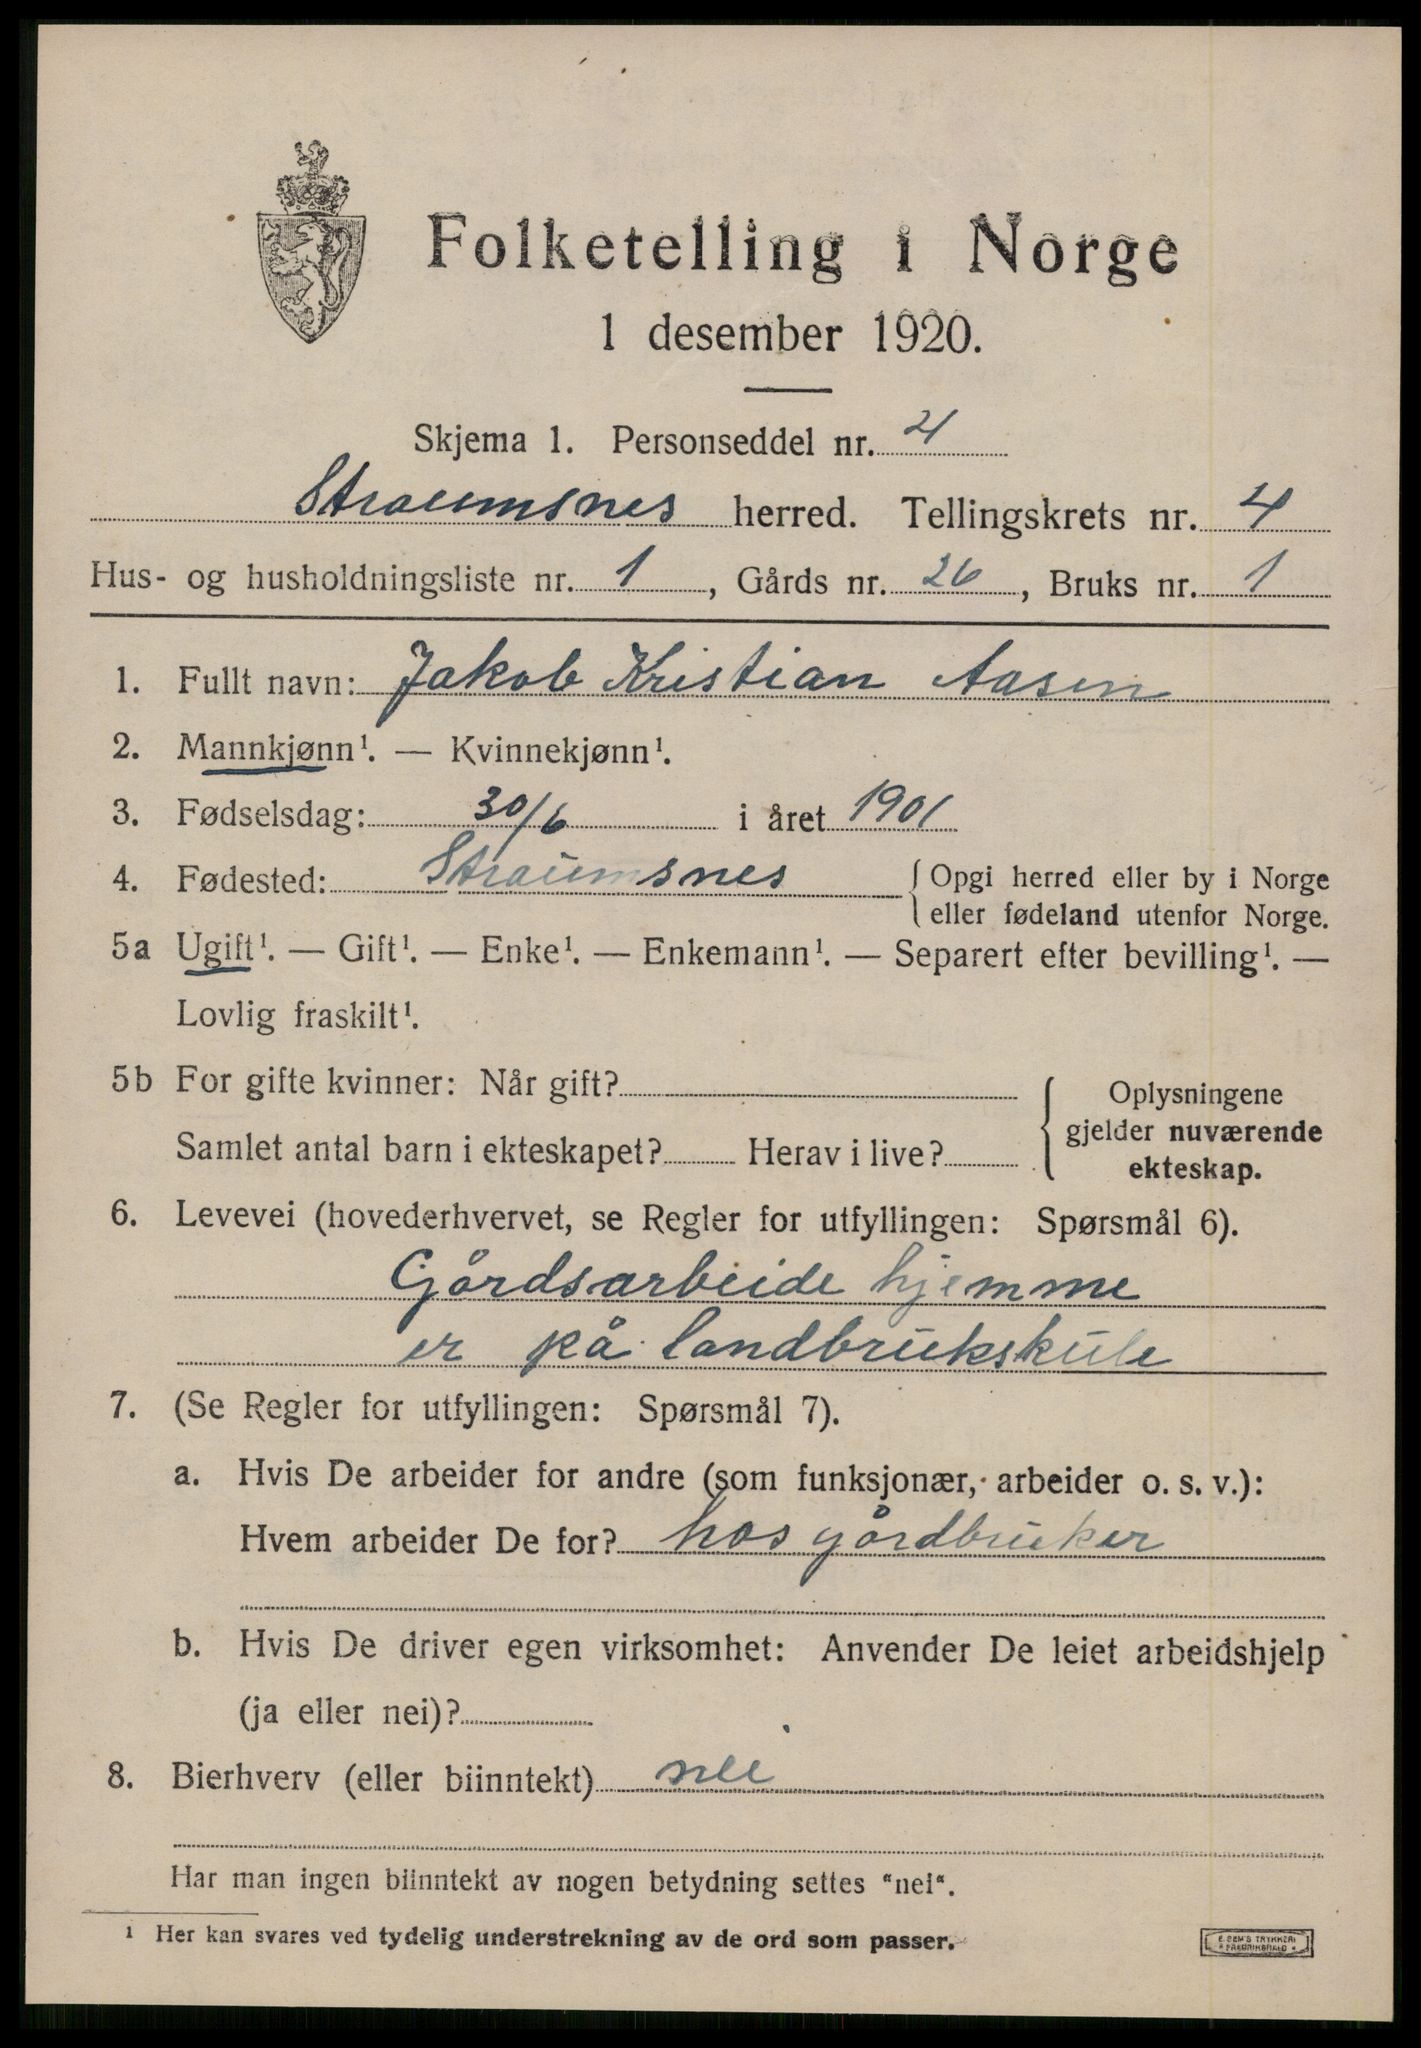 Folketelling i Norge
1 desember 1920.
Skjema 1. Personseddel nr. 4
Straumsnes herred. Tellingskrets nr. 4
Hus- og husholdningsliste nr. 1, Gårds nr. 26, Bruks nr. 1
1. Fullt navn: Jakob Kristian Aasen
2. Mannkjønn¹. — Kvinnekjønn¹.
3. Fødselsdag: 30/6 i året 1901
4. Fødested: Straumsnes { Opgi herred eller by i Norge
eller fødeland utenfor Norge.
5a Ugift¹. — Gift¹. — Enke¹. — Enkemann¹. — Separert efter bevilling¹. —
Lovlig fraskilt¹.
5b For gifte kvinner: Når gift?
Samlet antal barn i ekteskapet? Herav i live?
Oplysningene
gjelder nuværende
ekteskap.
6. Levevei (hovederhvervet, se Regler for utfyllingen: Spørsmål 6).
Gårdsarbeide hjemme
er på landbrukskule
7. (Se Regler for utfyllingen: Spørsmål 7).
a. Hvis De arbeider for andre (som funksjonær, arbeider o. s. v.):
Hvem arbeider De for? hos gårdbruker
b. Hvis De driver egen virksomhet: Anvender De leiet arbeidshjelp
(ja eller nei)?
8. Bierhverv (eller biinntekt) nei
Har man ingen biinntekt av nogen betydning settes "nei".
¹ Her kan svares ved tydelig understrekning av de ord som passer.
E. SEM'S TRYKKERI
FREDRIKSHALD